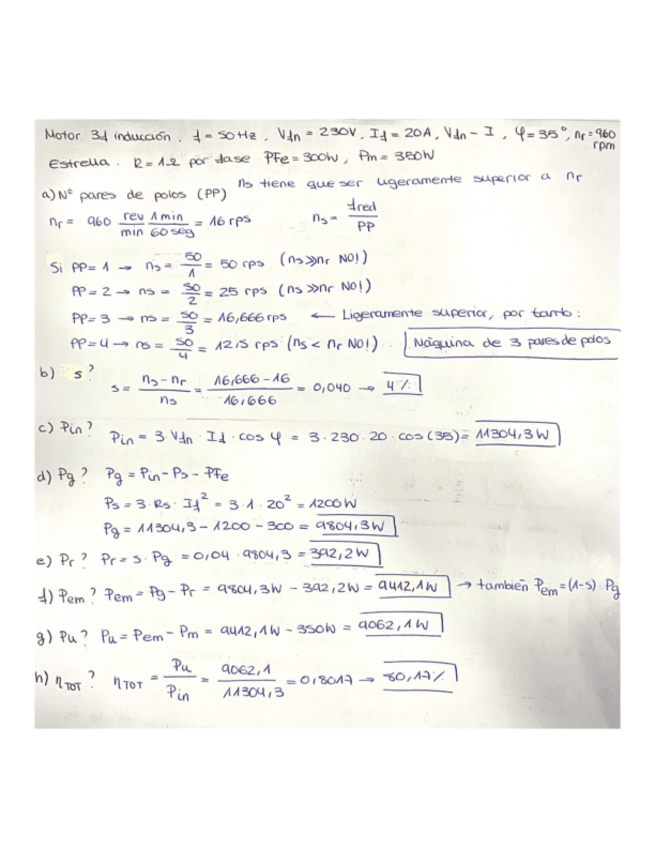 Motor 3f inducción. f = 50 Hz, Vfn = 230V, If = 20A, Vfn - I, φ = 35°, nr = 960 rpm
Estrella. R = 1Ω por fase PFe = 300W, Pm = 350W
ns tiene que ser ligeramente superior a nr
a) Nº pares de polos (PP)
nr = 960 rev/min 1 min/60 seg = 16 rps ns = fred/PP
Si PP = 1 → ns = 50/1 = 50 rps (ns >> nr NO!)
PP = 2 → ns = 50/2 = 25 rps (ns >> nr NO!)
PP = 3 → ns = 50/3 = 16,666 rps ← Ligeramente superior, por tanto:
PP = 4 → ns = 50/4 = 12,5 rps (ns < nr NO!) Máquina de 3 pares de polos
b) s? s = (ns - nr)/ns = (16,666 - 16)/16,666 = 0,040 → 4%
c) Pin? Pin = 3 · Vfn · If · cos φ = 3 · 230 · 20 · cos(35) = 11304,3 W
d) Pg? Pg = Pin - Ps - PFe
Ps = 3 · Rs · If² = 3 · 1 · 20² = 1200 W
Pg = 11304,3 - 1200 - 300 = 9804,3 W
e) Pr? Pr = s · Pg = 0,04 · 9804,3 = 392,2 W
f) Pem? Pem = Pg - Pr = 9804,3W - 392,2W = 9412,1W → también Pem = (1-s) · Pg
g) Pu? Pu = Pem - Pm = 9412,1W - 350W = 9062,1W
h) ηTOT? ηTOT = Pu/Pin = 9062,1/11304,3 = 0,8017 → 80,17%